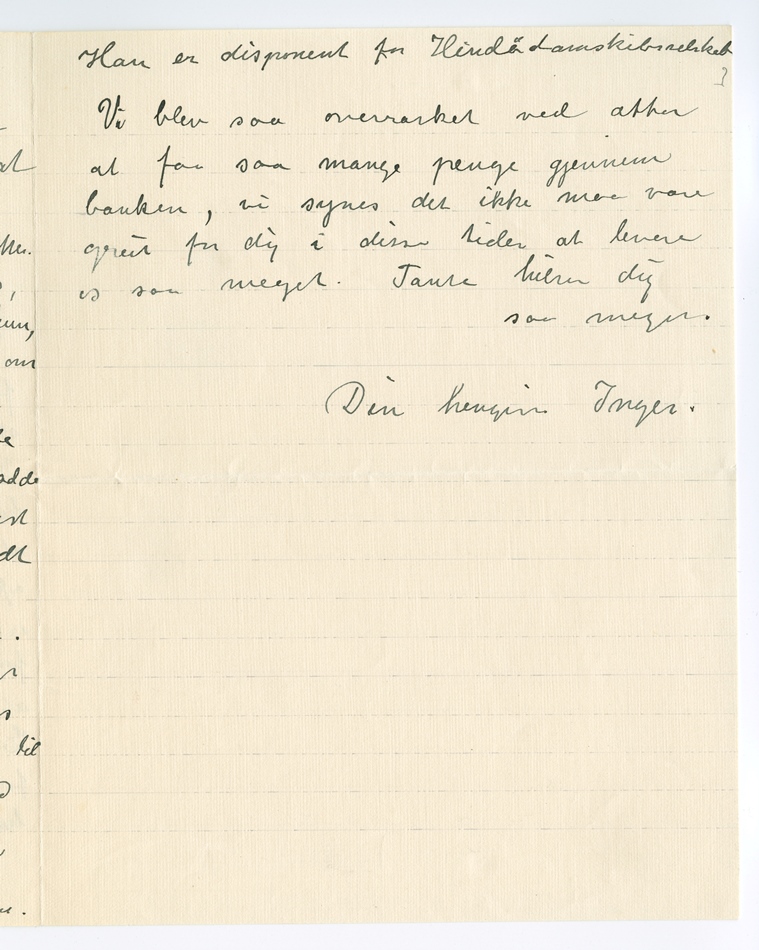 Han er disponent for Hindödamskibsselskab
Vi blev saa overrasket ved atter
at faa saa mange penge gjennem
banken, vi synes det ikke maa være
greit for dig i disse tider at levere
os saa meget. Tante hilser dig
saa meget.
Din hengivne Inger.
at
om
til